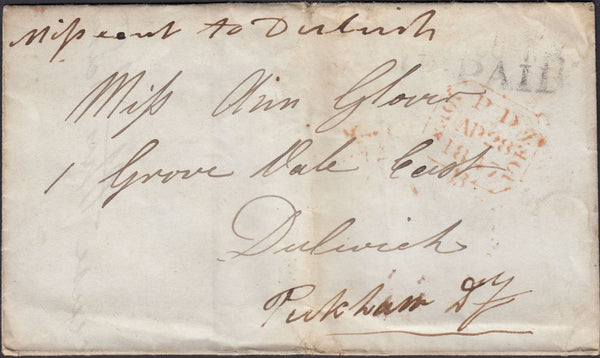 Missent to Dulwich
PAID
Miss Ann Glover
1 Grove Vale East
Dulwich
Peckham Dy
AP 28